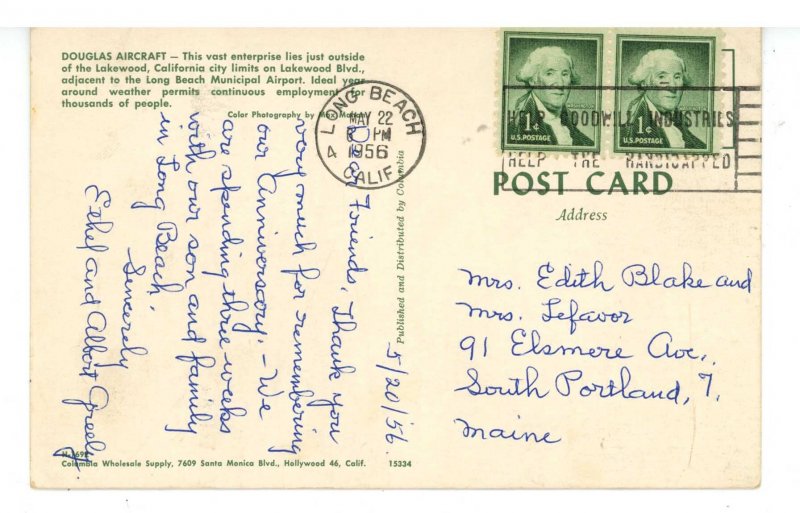 DOUGLAS AIRCRAFT — This vast enterprise lies just outside
of the Lakewood, California city limits on Lakewood Blvd.,
adjacent to the Long Beach Municipal Airport. Ideal year
around weather permits continuous employment for
thousands of people.
Color Photography by Max
LONG BEACH
MAY 22
PM
1956
4 CALIF.
1¢ U.S. POSTAGE
1¢ U.S. POSTAGE
HELP GOODWILL INDUSTRIES
HELP THE HANDICAPPED
POST CARD
Address
5/20/56.
Dear Friends, Thank you
very much for remembering
our Anniversary. - We
are spending three weeks
with our son and family
in Long Beach,
Sincerely
Ethel and Albert Greely.
Published and Distributed by Columbia
Mrs. Edith Blake and
Mrs. Lefavor
91 Elsmere Ave.,
South Portland, 7,
Maine
Columbia Wholesale Supply, 7609 Santa Monica Blvd., Hollywood 46, Calif. 15334